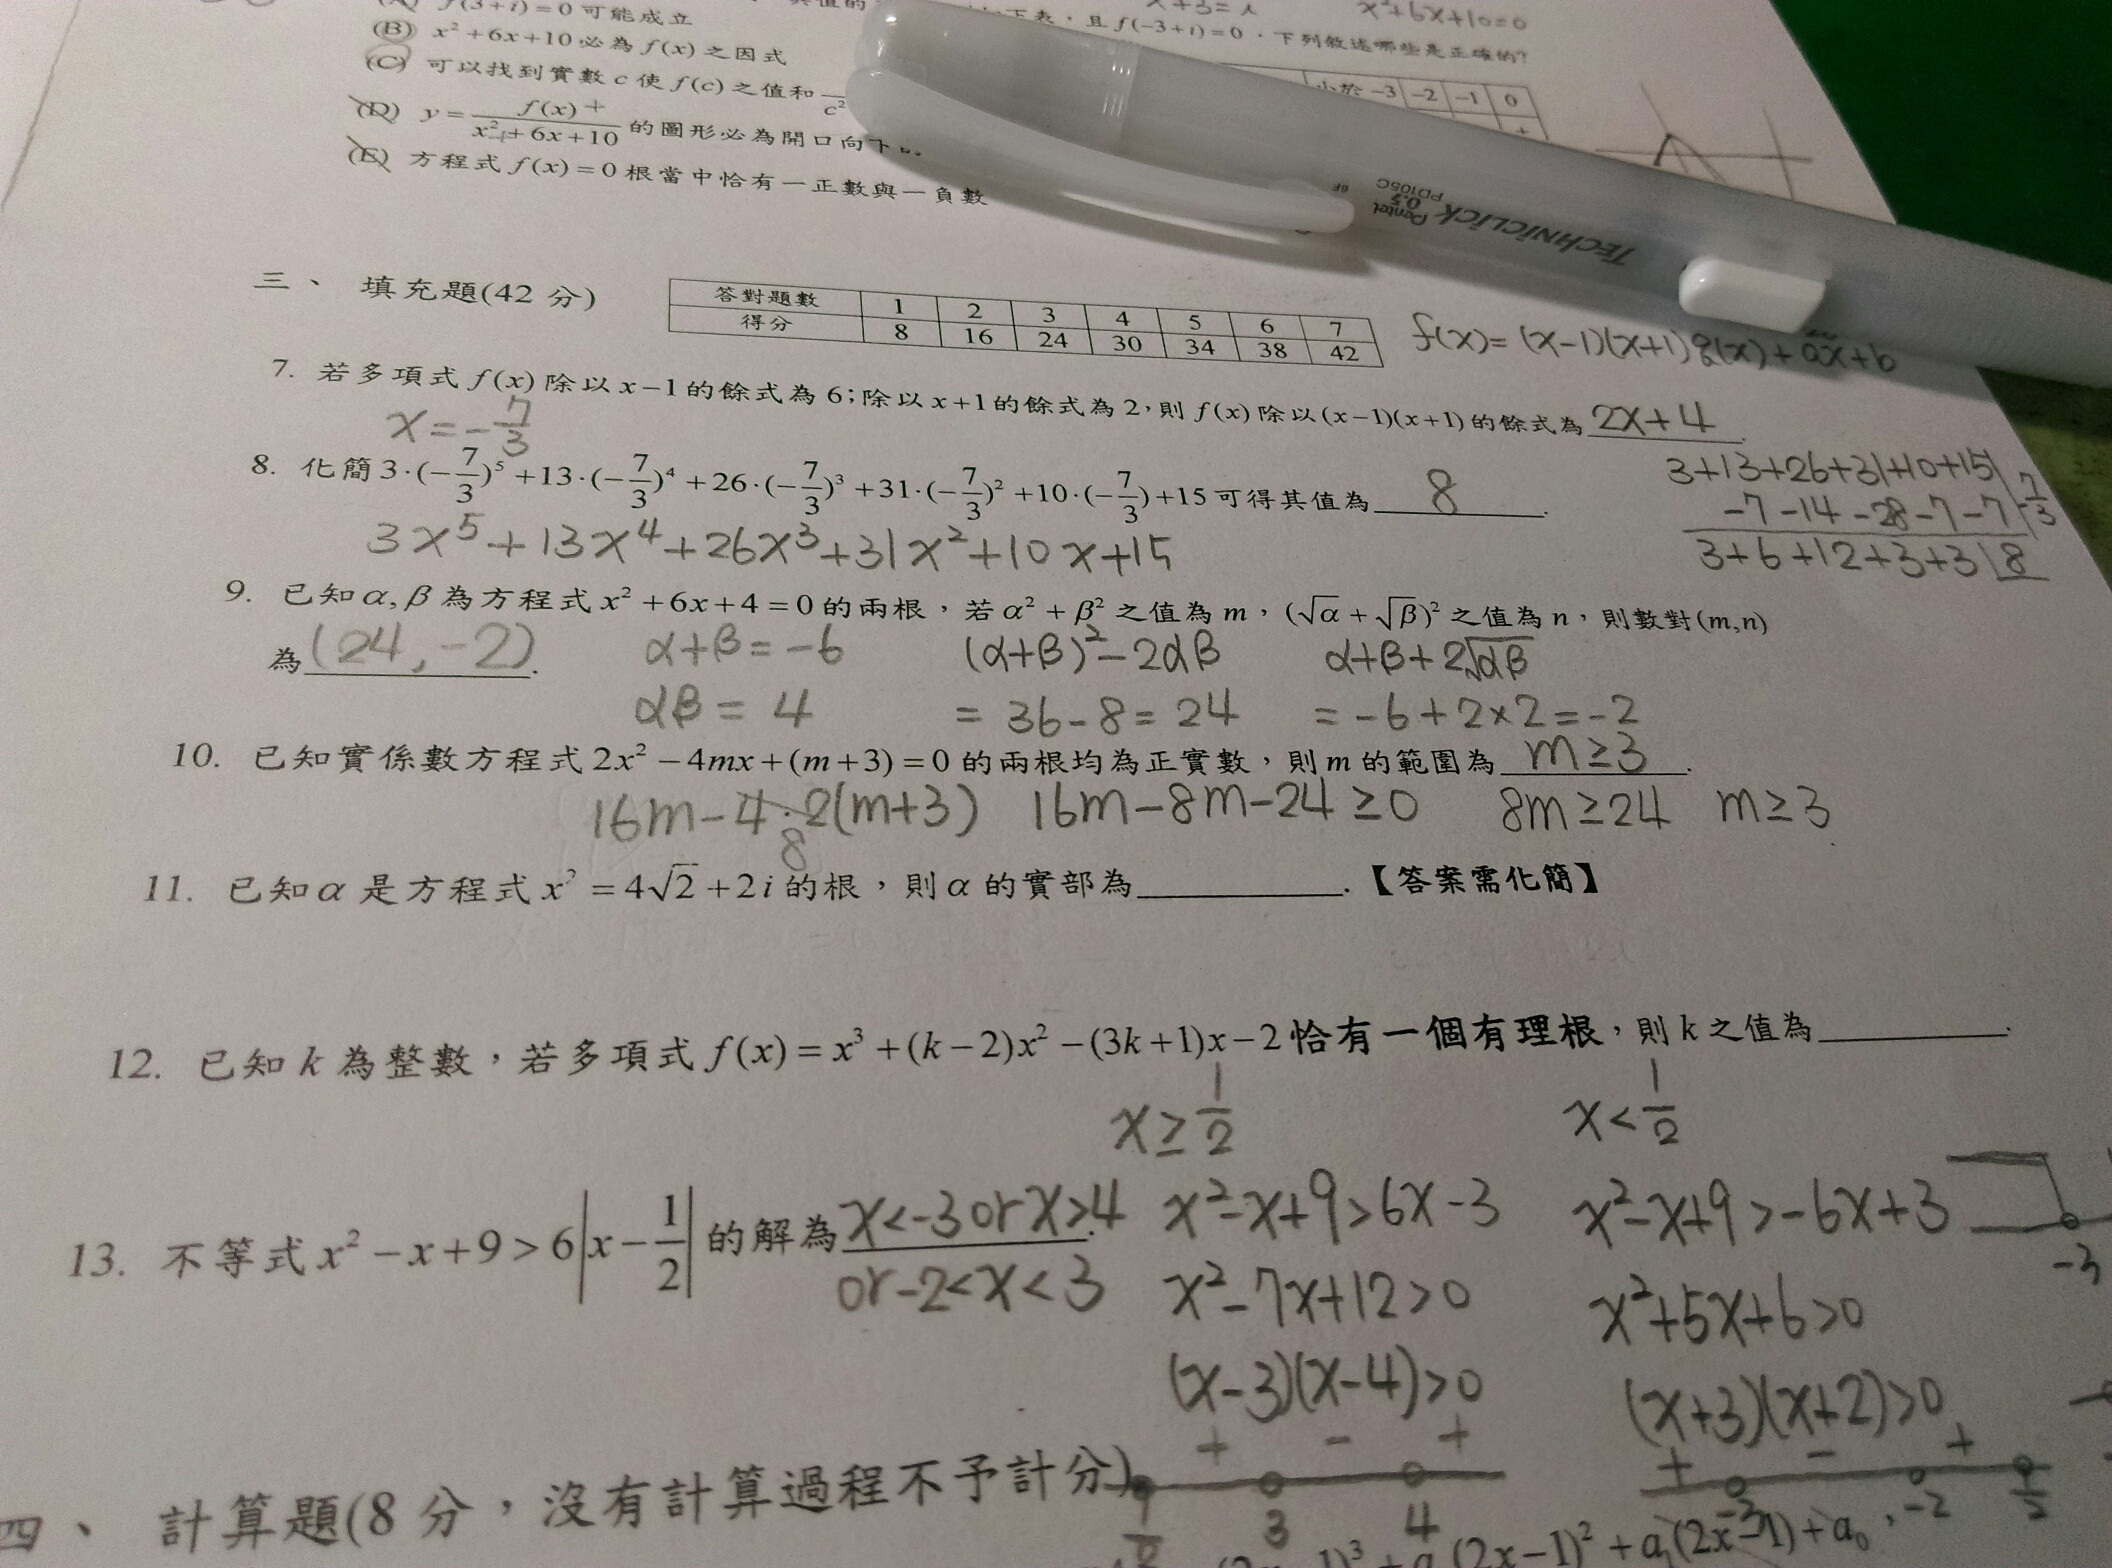 f(3+i)=0 可能成立
x+3=i
x²+6x+10=0
(B) x²+6x+10 必為 f(x) 之因式
下表，且 f(-3+i)=0，下列敘述哪些是正確的?
(C) 可以找到實數 c 使 f(c) 之值和
小於 -3 -2 -1 0
(D) y = f(x) / x²+6x+10 的圖形必為開口向下
(E) 方程式 f(x)=0 根當中恰有一正數與一負數
Pentel 0.5 TECHNICLICK PD105C
三、 填充題(42 分)
答對題數 1 2 3 4 5 6 7
得分 8 16 24 30 34 38 42
f(x)=(x-1)(x+1)q(x)+ax+b
7. 若多項式 f(x) 除以 x-1 的餘式為 6;除以 x+1 的餘式為 2,則 f(x) 除以 (x-1)(x+1) 的餘式為 2x+4.
x=-7/3
8. 化簡 3·(-7/3)⁵+13·(-7/3)⁴+26·(-7/3)³+31·(-7/3)²+10·(-7/3)+15 可得其值為 8.
3x⁵+13x⁴+26x³+31x²+10x+15
3+13+26+31+10+15 -7/3
-7-14-28-7-7
3+6+12+3+3 8
9. 已知 α,β 為方程式 x²+6x+4=0 的兩根，若 α²+β² 之值為 m，(√α+√β)² 之值為 n，則數對 (m,n)
為 (24,-2).
α+β=-6 (α+β)²-2αβ α+β+2√αβ
αβ=4 =36-8=24 =-6+2×2=-2
10. 已知實係數方程式 2x²-4mx+(m+3)=0 的兩根均為正實數，則 m 的範圍為 m≥3.
16m-4·2(m+3) 16m-8m-24≥0 8m≥24 m≥3
8
11. 已知 α 是方程式 x²=4√2+2i 的根，則 α 的實部為 .【答案需化簡】
12. 已知 k 為整數，若多項式 f(x)=x³+(k-2)x²-(3k+1)x-2 恰有一個有理根，則 k 之值為 .
x≥1/2 x<1/2
13. 不等式 x²-x+9>6|x-1/2| 的解為 x<-3 or x>4.
or -2<x<3
x²-x+9>6x-3 x²-x+9>-6x+3
-3
x²-7x+12>0 x²+5x+6>0
(x-3)(x-4)>0 (x+3)(x+2)>0
+ - + + - +
3 4 -3 -2 1/2
四、 計算題(8 分，沒有計算過程不予計分)
(2x-1)²+a₁(2x-1)+a₀，